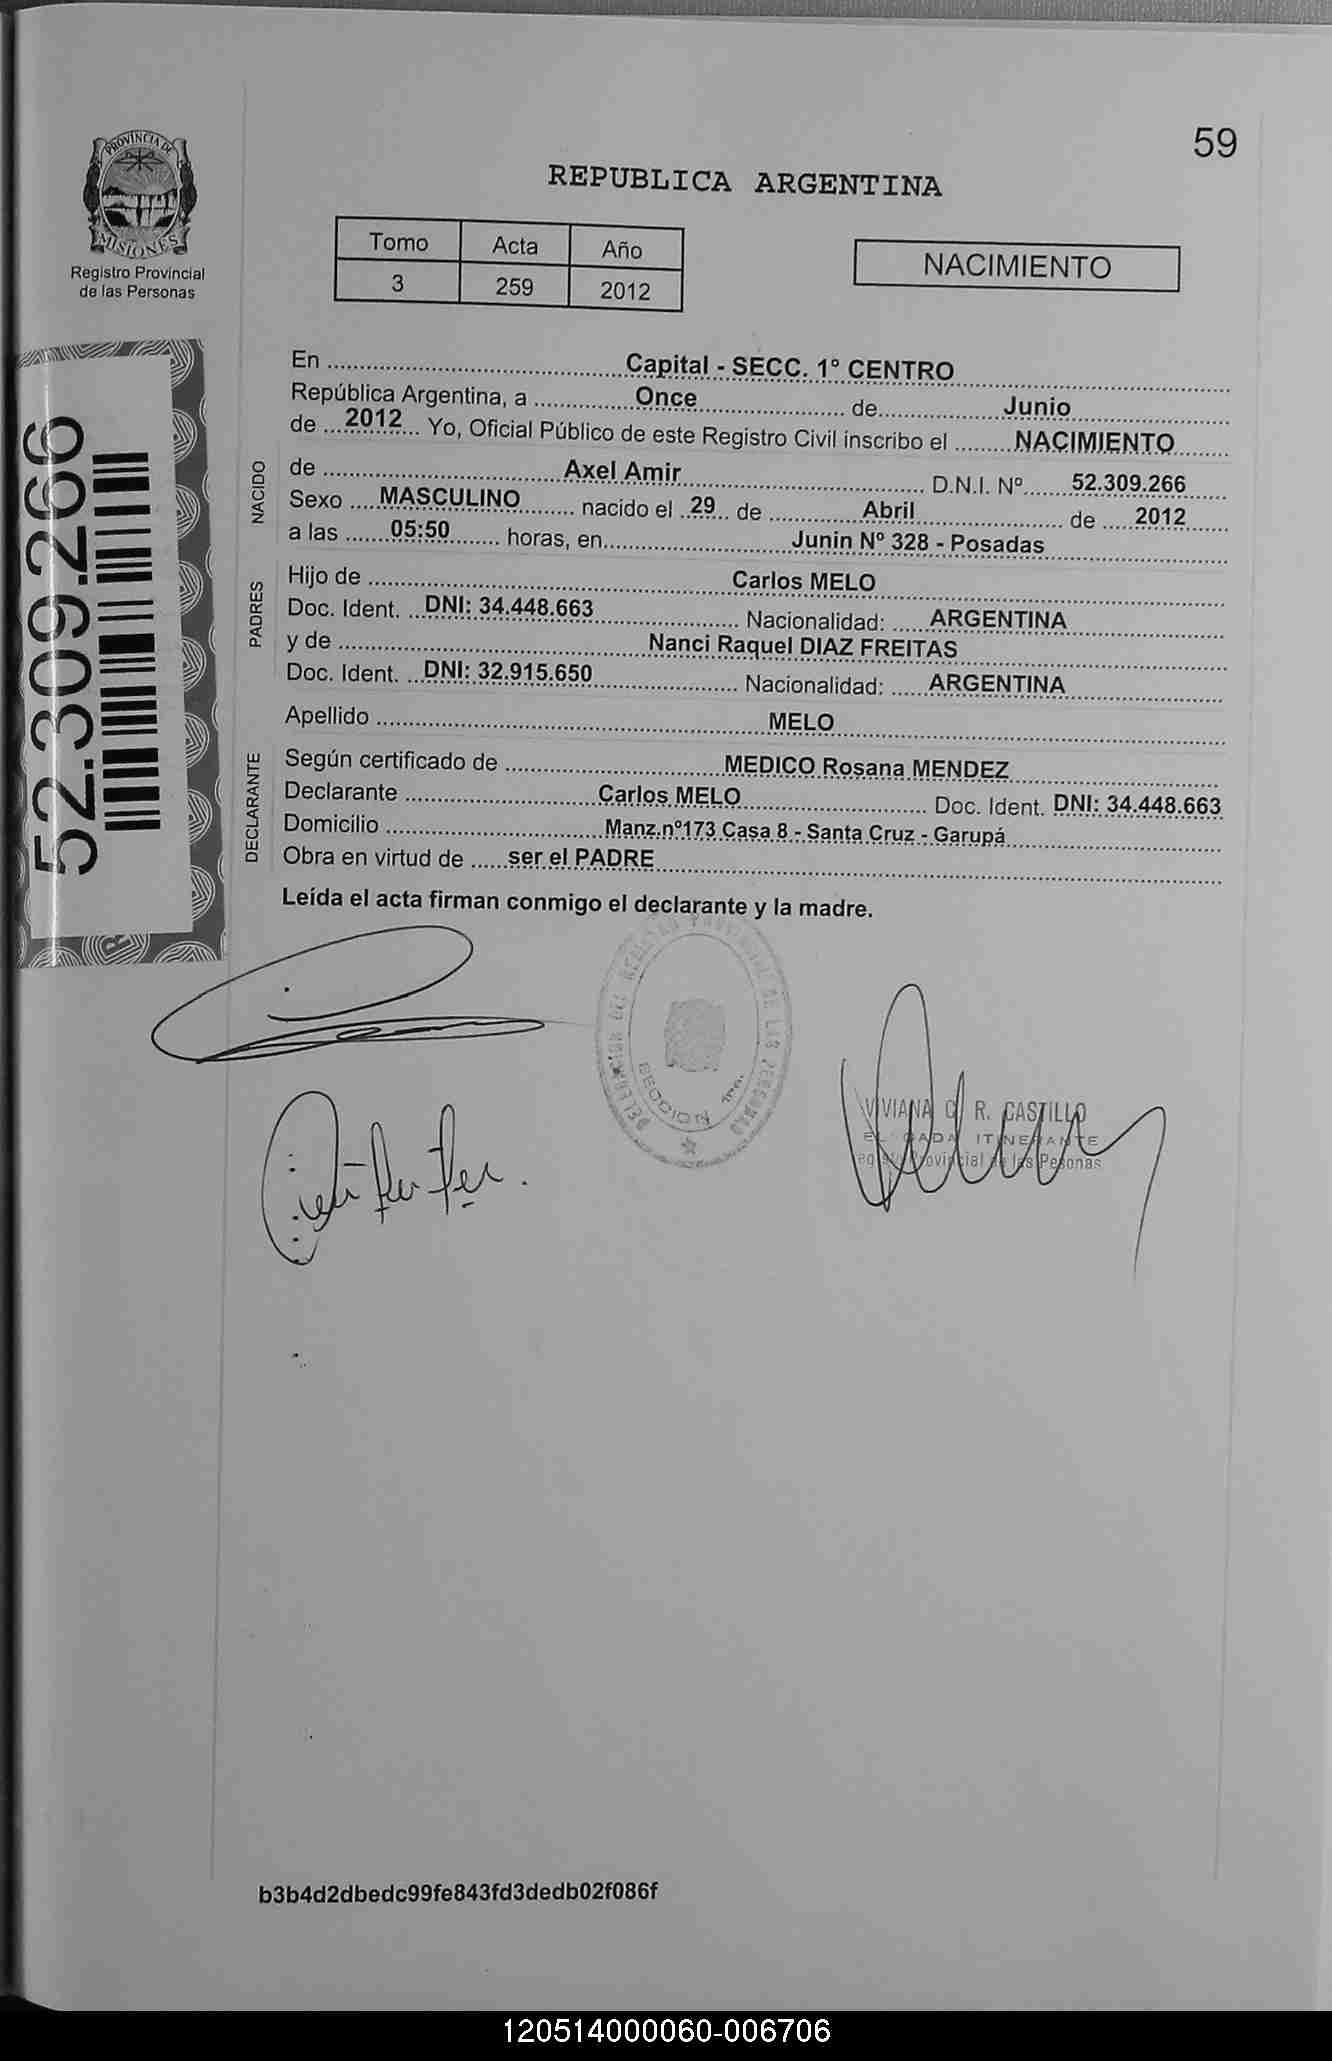 59
PROVINCIA DE
MISIONES
Registro Provincial
de las Personas
REPUBLICA ARGENTINA
Tomo Acta Año
3 259 2012
NACIMIENTO
52.309.266
En Capital - SECC. 1° CENTRO
República Argentina, a Once de Junio
de 2012 Yo, Oficial Público de este Registro Civil inscribo el NACIMIENTO
NACIDO
de Axel Amir D.N.I. Nº 52.309.266
Sexo MASCULINO nacido el 29 de Abril de 2012
a las 05:50 horas, en Junin Nº 328 - Posadas
PADRES
Hijo de Carlos MELO
Doc. Ident. DNI: 34.448.663 Nacionalidad: ARGENTINA
y de Nanci Raquel DIAZ FREITAS
Doc. Ident. DNI: 32.915.650 Nacionalidad: ARGENTINA
Apellido MELO
DECLARANTE
Según certificado de MEDICO Rosana MENDEZ
Declarante Carlos MELO Doc. Ident. DNI: 34.448.663
Domicilio Manz.nº173 Casa 8 - Santa Cruz - Garupá
Obra en virtud de ser el PADRE
Leída el acta firman conmigo el declarante y la madre.
DELEGACION DEL REGISTRO PROVINCIAL DE LAS PERSONAS
SECCION 1ra.
VIVIANA C. R. CASTILLO
ITINERANTE
Provincial de las Personas
b3b4d2dbedc99fe843fd3dedb02f086f
120514000060-006706